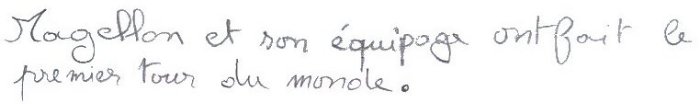 Magellan et son équipage ont fait le
premier tour du monde.